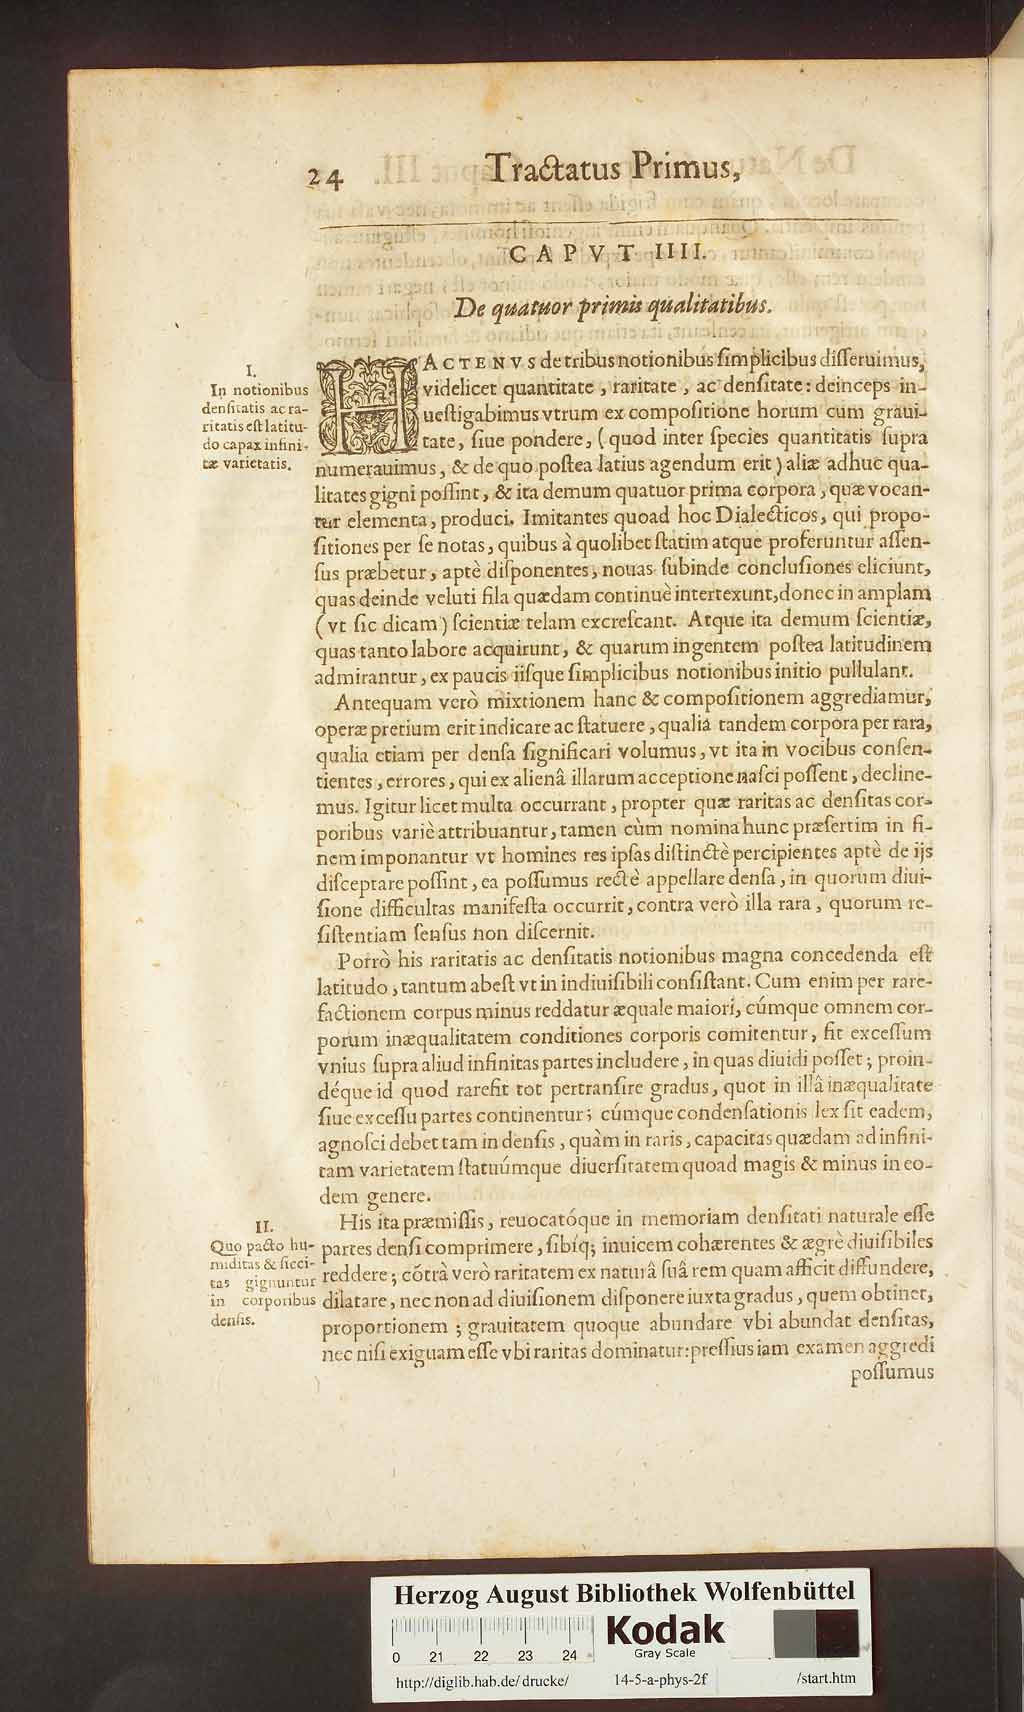 24 Tractatus Primus,
CAPVT IIII.
De quatuor primis qualitatibus.
I.
In notionibus
densitatis ac ra-
ritatis est latitu-
do capax infini-
tæ varietatis.
HACTENVS de tribus notionibus simplicibus disseruimus,
videlicet quantitate, raritate, ac densitate: deinceps in-
uestigabimus vtrum ex compositione horum cum graui-
tate, siue pondere, (quod inter species quantitatis supra
numerauimus, & de quo postea latius agendum erit) aliæ adhuc qua-
litates gigni possint, & ita demum quatuor prima corpora, quæ vocan-
tur elementa, produci. Imitantes quoad hoc Dialecticos, qui propo-
sitiones per se notas, quibus à quolibet statim atque proferuntur assen-
sus præbetur, aptè disponentes, nouas subinde conclusiones eliciunt,
quas deinde veluti fila quædam continuè intertexunt, donec in amplam
(vt sic dicam) scientiæ telam excrescant. Atque ita demum scientiæ,
quas tanto labore acquirunt, & quarum ingentem postea latitudinem
admirantur, ex paucis iisque simplicibus notionibus initio pullulant.
Antequam verò mixtionem hanc & compositionem aggrediamur,
operæ pretium erit indicare ac statuere, qualia tandem corpora per rara,
qualia etiam per densa significari volumus, vt ita in vocibus consen-
tientes, errores, qui ex alienâ illarum acceptione nasci possent, decline-
mus. Igitur licet multa occurrant, propter quæ raritas ac densitas cor-
poribus variè attribuantur, tamen cùm nomina hunc præsertim in fi-
nem imponantur vt homines res ipsas distinctè percipientes aptè de ijs
disceptare possint, ea possumus rectè appellare densa, in quorum diui-
sione difficultas manifesta occurrit, contra verò illa rara, quorum re-
sistentiam sensus non discernit.
Porrò his raritatis ac densitatis notionibus magna concedenda est
latitudo, tantum abest vt in indiuisibili consistant. Cum enim per rare-
factionem corpus minus reddatur æquale maiori, cúmque omnem cor-
porum inæqualitatem conditiones corporis comitentur, fit excessum
vnius supra aliud infinitas partes includere, in quas diuidi posset; proin-
déque id quod rarefit tot pertransire gradus, quot in illâ inæqualitate
siue excessu partes continentur; cúmque condensationis lex sit eadem,
agnosci debet tam in densis, quàm in raris, capacitas quædam ad infini-
tam varietatem statuúmque diuersitatem quoad magis & minus in eo-
dem genere.
II.
Quo pacto hu-
miditas & sicci-
tas gignuntur
in corporibus
densis.
His ita præmissis, reuocatóque in memoriam densitati naturale esse
partes densi comprimere, sibíq; inuicem cohærentes & ægrè diuisibiles
reddere; cōtrà verò raritatem ex naturâ suâ rem quam afficit diffundere,
dilatare, nec non ad diuisionem disponere iuxta gradus, quem obtinet,
proportionem; grauitatem quoque abundare vbi abundat densitas,
nec nisi exiguam esse vbi raritas dominatur: pressius iam examen aggredi
possumus
Herzog August Bibliothek Wolfenbüttel
Kodak
Gray Scale
0 21 22 23 24
http://diglib.hab.de/drucke/ 14-5-a-phys-2f /start.htm